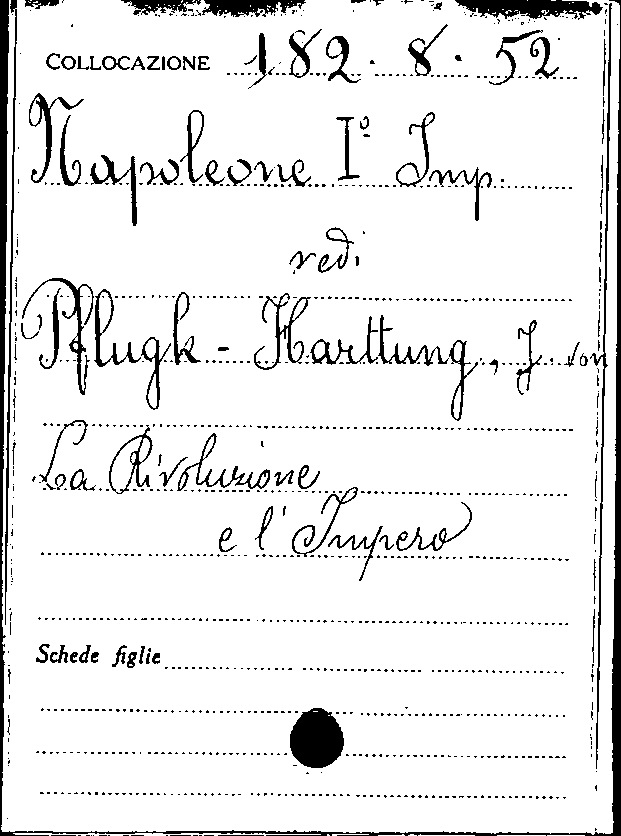 COLLOCAZIONE 182. 8. 52
Napoleone I° Imp.
vedi
Pflugk-Harttung, J. von
La Rivoluzione
e l'Impero
Schede figlie